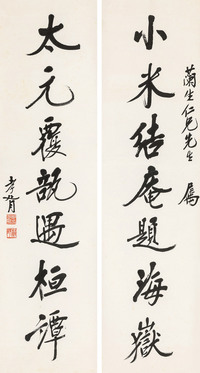 小米結庵題海嶽
蘭生仁兄先生 屬
太元覆瓿遇桓譚
孝胥